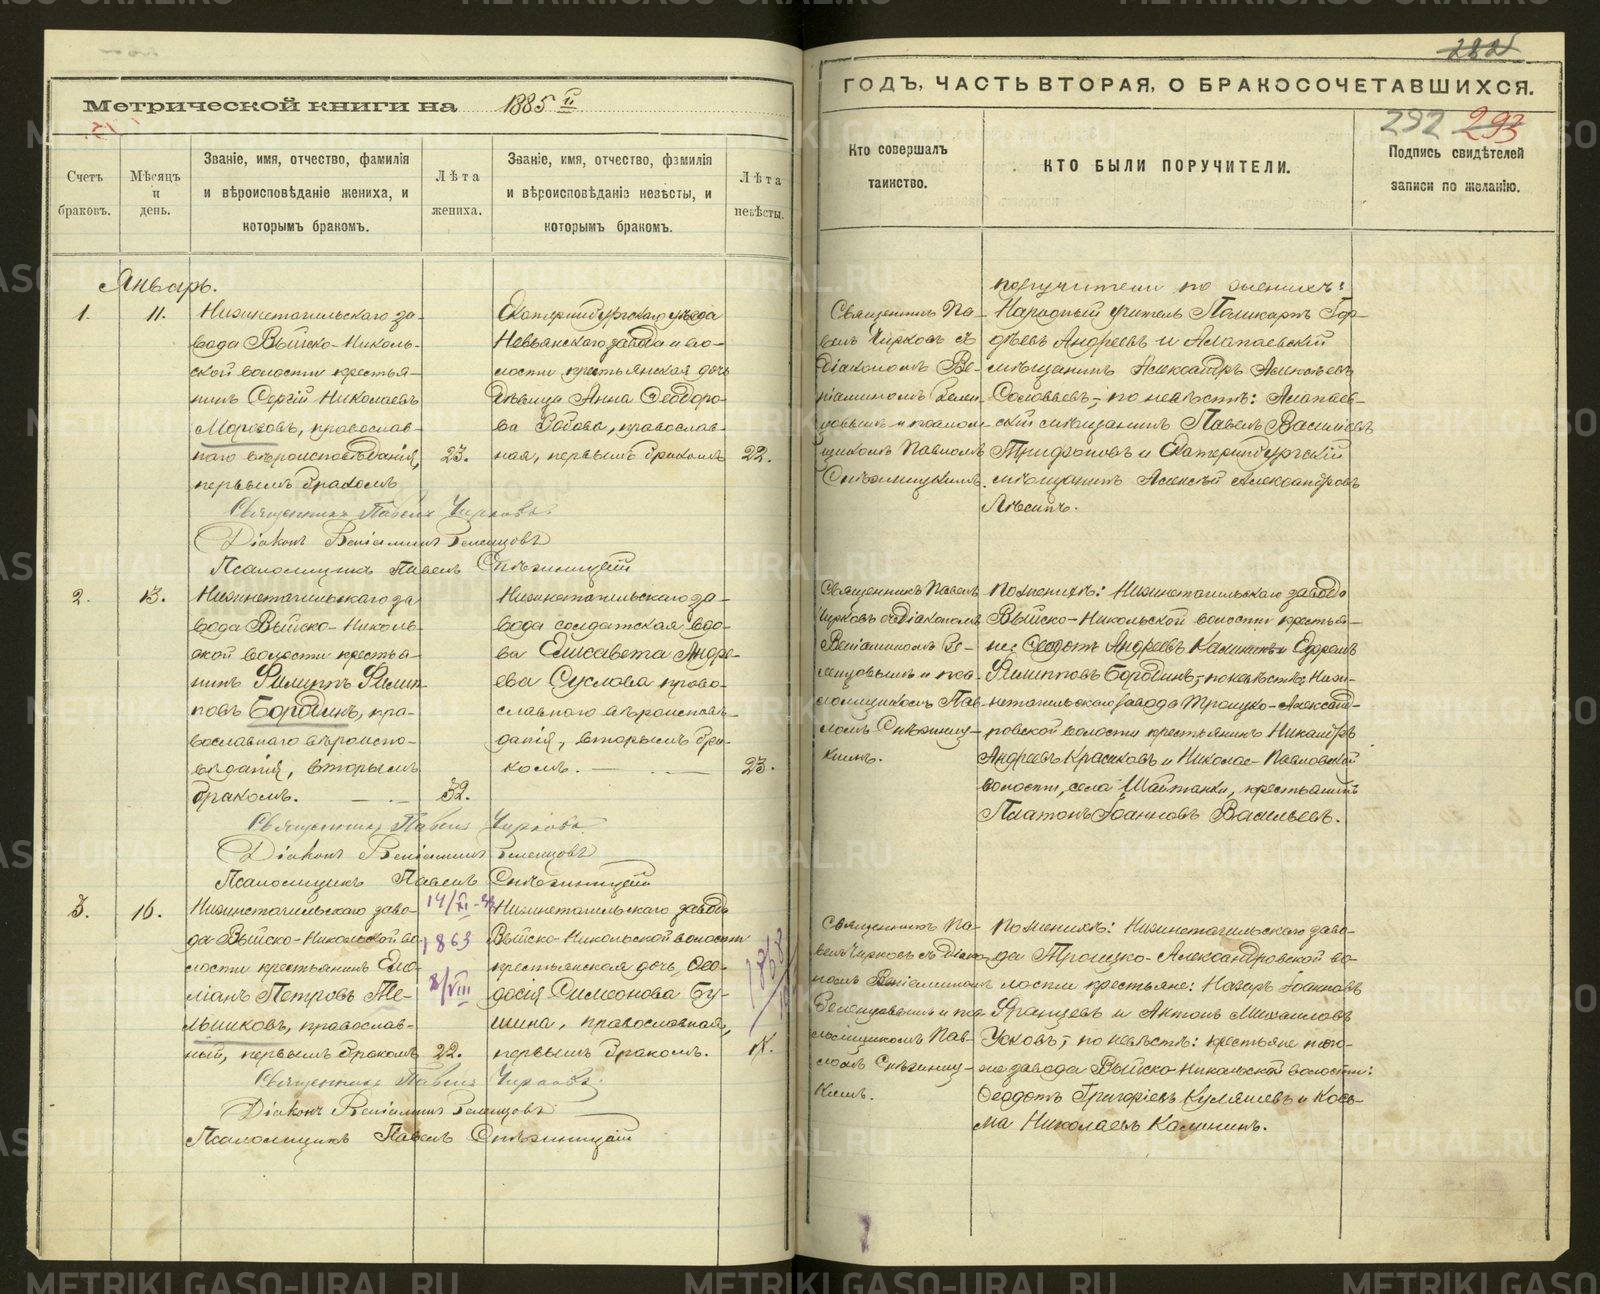 282
Метрической книги на 1885 г.
ГОДЪ, ЧАСТЬ ВТОРАЯ, О БРАКОСОЧЕТАВШИХСЯ.
292 293
Счетъ браковъ.
Мѣсяцъ и день.
Званіе, имя, отчество, фамилія и вѣроисповѣданіе жениха, и которымъ бракомъ.
Лѣта жениха.
Званіе, имя, отчество, фамилія и вѣроисповѣданіе невѣсты, и которымъ бракомъ.
Лѣта невѣсты.
Кто совершалъ таинство.
КТО БЫЛИ ПОРУЧИТЕЛИ.
Подпись свидѣтелей записи по желанію.
Январь.
1.
11.
Нижнетагильскаго за-
вода Выйско-Николь-
ской волости крестья-
нинъ Сергій Николаевъ
православ-
наго вѣроисповѣданія,
первымъ бракомъ
23.
Екатеринбургскаго уѣзда
Невьянскаго завода и во-
лости крестьянская дочь
дѣвица Анна Ѳеодоро-
ва православ-
ная, первымъ бракомъ
22.
Священникъ Па-
велъ Чирковъ съ
Діакономъ Ве-
ніаминомъ
и псалом-
щикомъ Павломъ
поручители по женихѣ:
Народный учитель Поликарпъ Гор-
дѣевъ Андреевъ и Алапаевскій
мѣщанинъ Александръ Алексѣевъ
Соловьевъ; по невѣстѣ: Алапаев-
скій мѣщанинъ Павелъ Васильевъ
Трифоновъ и Екатеринбургскій
мѣщанинъ Алексѣй Александровъ
Священникъ Павелъ Чирковъ
Діаконъ Веніаминъ
Псаломщикъ Павелъ
2.
13.
Нижнетагильскаго за-
вода Выйско-Николь-
ской волости крестья-
нинъ Филиппъ Филип-
повъ Бородинъ, пра-
вославнаго вѣроиспо-
вѣданія, вторымъ
бракомъ.
32.
Нижнетагильскаго за-
вода солдатская вдо-
ва Елисавета Андре-
ева Суслова право-
славнаго вѣроисповѣ-
данія, вторымъ бра-
комъ.
23.
Священникъ Павелъ
Чирковъ съ Діакономъ
Веніаминомъ
и пса-
ломщикомъ Пав-
ломъ
По женихѣ: Нижнетагильскаго завода
Выйско-Никольской волости крестья-
не: Ѳедотъ Андреевъ Калининъ и Ефремъ
Филипповъ Бородинъ; по невѣстѣ: Ниж-
нетагильскаго завода Троицко-Александ-
ровской волости крестьянинъ Никандръ
Андреевъ Красиковъ и Николае-Павловской
волости, села Шайтанки, крестьянинъ
Платонъ Іоанновъ Васильевъ.
Священникъ Павелъ Чирковъ
Діаконъ Веніаминъ
Псаломщикъ Павелъ
3.
16.
Нижнетагильскаго заво-
да Выйско-Никольской во-
лости крестьянинъ Еми-
ліанъ Петровъ Ме-
льниковъ, православ-
ный, первымъ бракомъ
1863
8/VIII
22.
Нижнетагильскаго завода
Выйско-Никольской волости
крестьянская дочь, Ѳео-
досія Симеонова Бу-
шина, православная,
первымъ бракомъ.
1868
Священникъ Па-
велъ Чирковъ съ Діако-
номъ Веніаминомъ
и пса-
ломщикомъ Пав-
ломъ
По женихѣ: Нижнетагильскаго заво-
да Троицко-Александровской во-
лости крестьяне: Назаръ Іоанновъ
Францевъ и Антонъ Михаиловъ
Усковъ; по невѣстѣ: крестьяне того-
же завода Выйско-Никольской волости:
Ѳедотъ Григоріевъ Куляшевъ и Козь-
ма Николаевъ Калининъ.
Священникъ Павелъ Чирковъ
Діаконъ Веніаминъ
Псаломщикъ Павелъ
METRIKI.GASO-URAL.RU